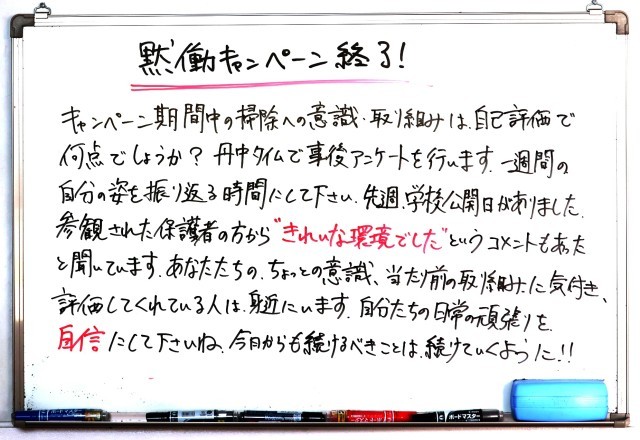 黙働キャンペーン終了!
キャンペーン期間中の掃除への意識・取り組みは、自己評価で
何点でしょうか? 丹中タイムで事後アンケートを行います。一週間の
自分の姿を振り返る時間にして下さい。先週、学校公開日がありました。
参観された保護者の方から“きれいな環境でした”というコメントもあった
と聞いています。あなたたちの、ちょっとの意識、当たり前の取り組みに気付き、
評価してくれている人は、身近にいます。自分たちの日常の頑張りを
自信にして下さいね。今日からも続けるべきことは、続けていくように!!
ボードマスター